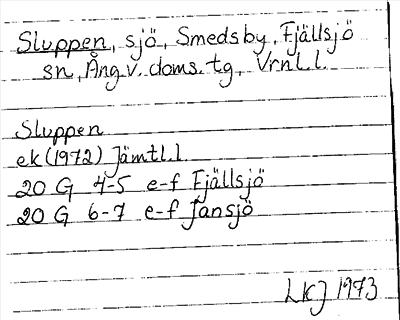 Sluppen, sjö, Smedsby, Fjällsjö
sn, Ång.v. doms. tg, Vrnl. l.
Sluppen
ek (1972) Jämtl. l
20 G 4-5 e-f Fjällsjö
20 G 6-7 e-f Jansjö
LKJ 1973